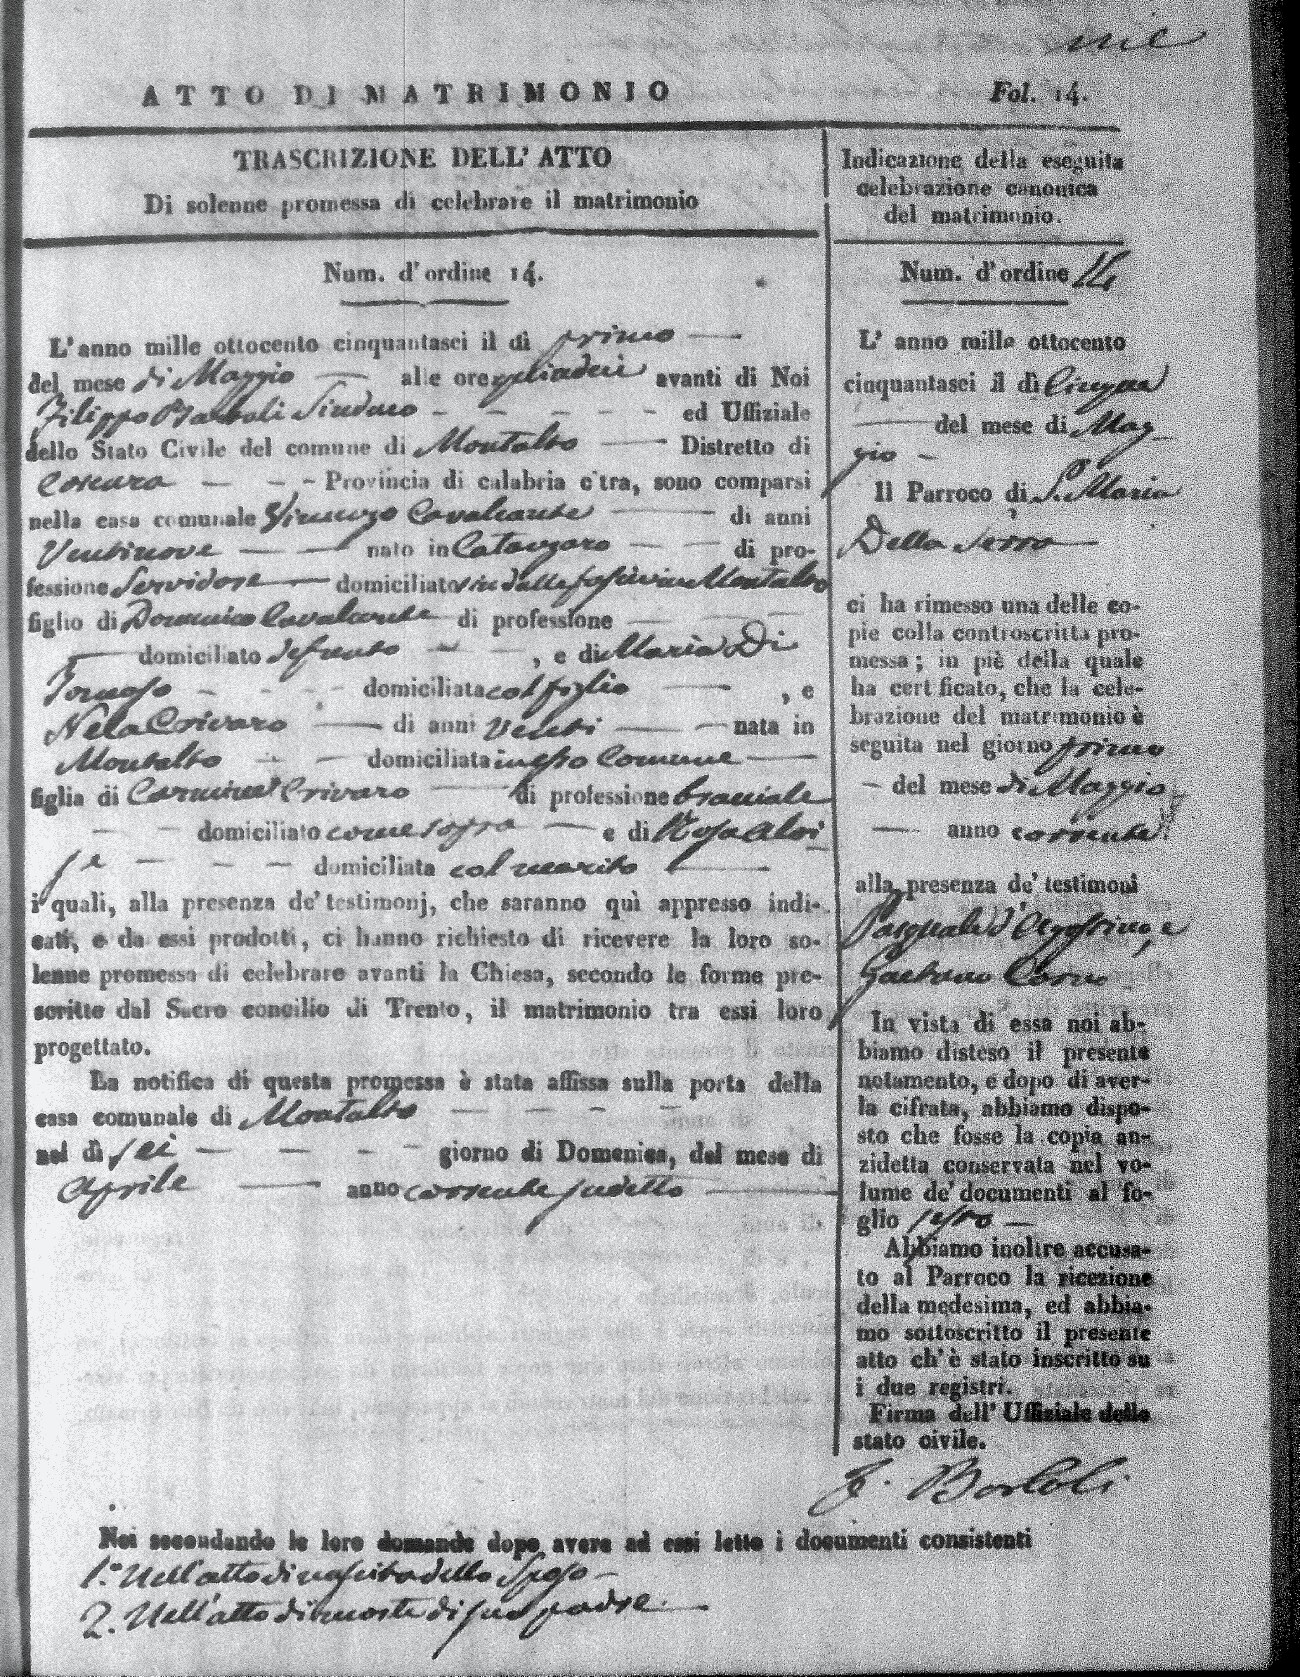 ATTO DI MATRIMONIO
Fol. 14.
TRASCRIZIONE DELL' ATTO
Di solenne promessa di celebrare il matrimonio
Num. d'ordine 14.
L'anno mille ottocento cinquantasei il dì primo
del mese di Maggio alle ore avanti di Noi
Filippo Bartoli Sindaco ed Uffiziale
dello Stato Civile del comune di Montalto Distretto di
Cosenza Provincia di calabria citra, sono comparsi
nella casa comunale Vincenzo Cavalcante di anni
Ventinove nato in Catanzaro di pro-
fessione Servidore domiciliato sin dalle fascie in Montalto
figlio di Domenico Cavalcante di professione
domiciliato defunto , e di Maria Di
Tomaso domiciliata col figlio , e
Nela Crivaro di anni Venti nata in
Montalto domiciliata in esso Comune
figlia di Carmine Crivaro di professione bracciale
domiciliato come sopra e di Rosa Aloi
se domiciliata col marito
i quali, alla presenza de' testimonj, che saranno quì appresso indi-
cati, e da essi prodotti, ci hanno richiesto di ricevere la loro so-
lenne promessa di celebrare avanti la Chiesa, secondo le forme pre-
scritte dal Sacro concilio di Trento, il matrimonio tra essi loro
progettato.
La notifica di questa promessa è stata affissa sulla porta della
casa comunale di Montalto
nel dì sei giorno di Domenica, del mese di
Aprile anno corrente sudetto
Indicazione della eseguita
celebrazione canonica
del matrimonio.
Num. d'ordine 14
L' anno mille ottocento
cinquantasei il dì Cinque
del mese di Mag-
gio
Il Parroco di S. Maria
Della Serra
ci ha rimesso una delle co-
pie colla controscritta pro-
messa; in piè della quale
ha certificato, che la cele-
brazione del matrimonio è
seguita nel giorno primo
del mese di Maggio
anno corrente
alla presenza de' testimoni
Pasquale d'Agostino, e
Gaetano
In vista di essa noi ab-
biamo disteso il presente
notamento, e dopo di aver-
la cifrata, abbiamo dispo-
sto che fosse la copia an-
zidetta conservata nel vo-
lume de' documenti al fo-
glio
Abbiamo inoltre accusa-
to al Parroco la ricezione
della medesima, ed abbia-
mo sottoscritto il presente
atto ch'è stato inscritto su
i due registri.
Firma dell' Uffiziale dello
stato civile.
F. Bartoli
Noi secondando le loro domande dopo avere ad essi letto i documenti consistenti
1.° Nell'atto di nascita dello Sposo
2. Nell'atto di morte di suo padre.